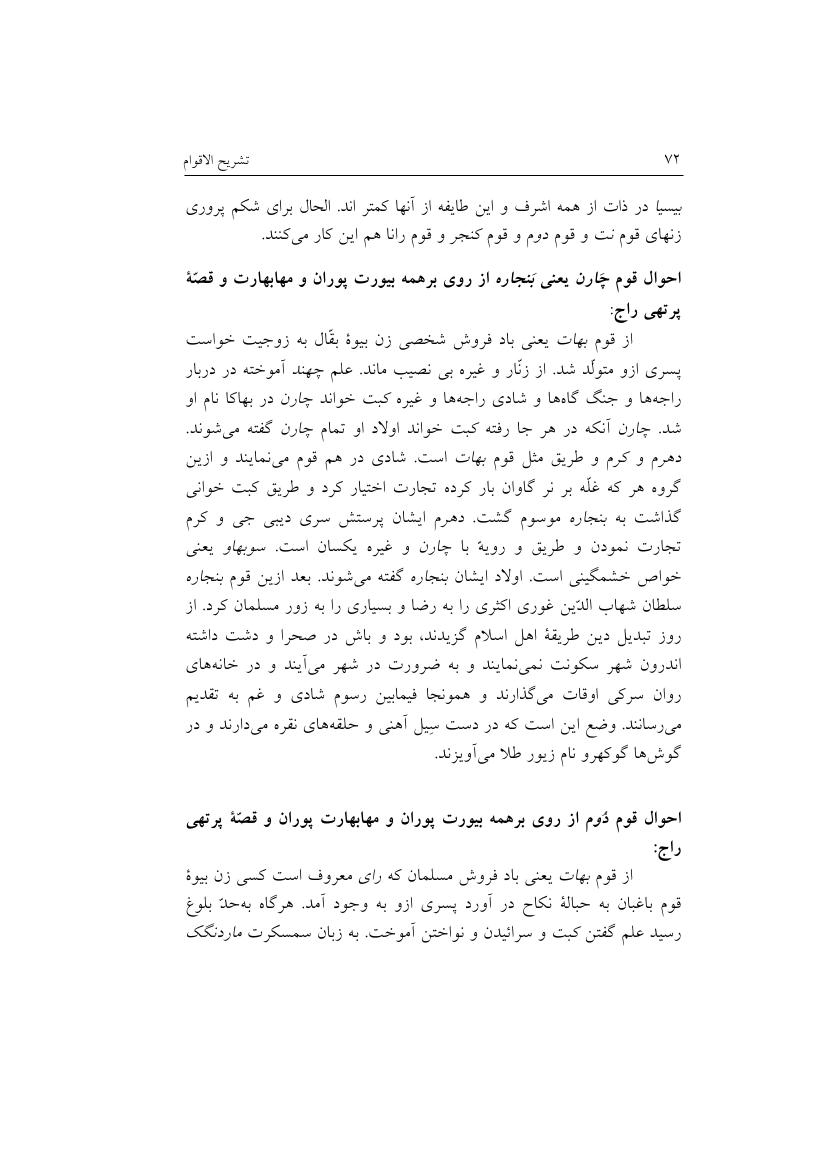 ۷۲ تشریح الاقوام
بیسیا در ذات از همه اشرف و این طایفه از آنها کمتر اند. الحال برای شکم پروری
زنهای قوم نت و قوم دوم و قوم کنجر و قوم رانا هم این کار می‌کنند.
احوال قوم چَارن یعنی بَنجاره از روی برهمه بیورت پوران و مهابهارت و قصّهٔ
پرتهی راج:
از قوم بهات یعنی باد فروش شخصی زن بیوهٔ بقّال به زوجیت خواست
پسری ازو متولّد شد. از زنّار و غیره بی نصیب ماند. علم چهند آموخته در دربار
راجه‌ها و جنگ گاه‌ها و شادی راجه‌ها و غیره کبت خواند چارن در بهاکا نام او
شد. چارن آنکه در هر جا رفته کبت خواند اولاد او تمام چارن گفته می‌شوند.
دهرم و کرم و طریق مثل قوم بهات است. شادی در هم قوم می‌نمایند و ازین
گروه هر که غلّه بر نر گاوان بار کرده تجارت اختیار کرد و طریق کبت خوانی
گذاشت به بنجاره موسوم گشت. دهرم ایشان پرستش سری دیبی جی و کرم
تجارت نمودن و طریق و رویهٔ با چارن و غیره یکسان است. سوبهاو یعنی
خواص خشمگینی است. اولاد ایشان بنجاره گفته می‌شوند. بعد ازین قوم بنجاره
سلطان شهاب الدّین غوری اکثری را به رضا و بسیاری را به زور مسلمان کرد. از
روز تبدیل دین طریقهٔ اهل اسلام گزیدند، بود و باش در صحرا و دشت داشته
اندرون شهر سکونت نمی‌نمایند و به ضرورت در شهر می‌آیند و در خانه‌های
روان سرکی اوقات می‌گذارند و همونجا فیمابین رسوم شادی و غم به تقدیم
می‌رسانند. وضع این است که در دست سِیل آهنی و حلقه‌های نقره می‌دارند و در
گوش‌ها گوکهرو نام زیور طلا می‌آویزند.
احوال قوم دُوم از روی برهمه بیورت پوران و مهابهارت پوران و قصّهٔ پرتهی
راج:
از قوم بهات یعنی باد فروش مسلمان که رای معروف است کسی زن بیوهٔ
قوم باغبان به حبالهٔ نکاح در آورد پسری ازو به وجود آمد. هرگاه به‌حدّ بلوغ
رسید علم گفتن کبت و سرائیدن و نواختن آموخت. به زبان سمسکرت ماردنگک